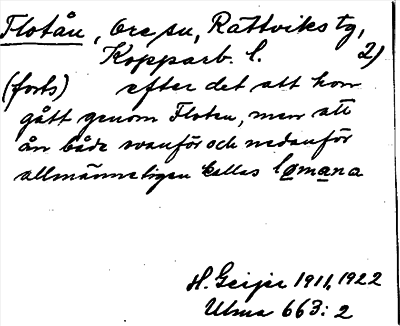 Flotån, Ore sn, Rättviks tg,
Kopparb. l. 2)
(forts) efter det att hon
gått genom Floten, men att
ån både ovanför och nedanför
allmänneligen kallas lømana
H. Geijer 1911, 1922
Ulma 663: 2